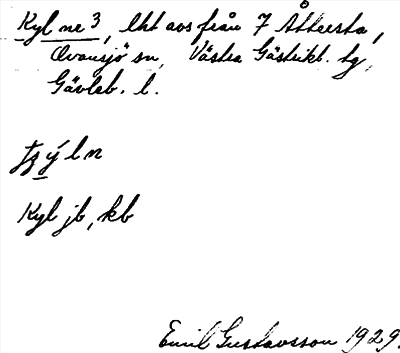 Kyl nr 3, lht avs från 7 Åttersta,
Ovansjö sn, Västra Gästrikl. tg,
Gävleb. l.
Kyl jb, kb
Emil Gustavsson 1929.